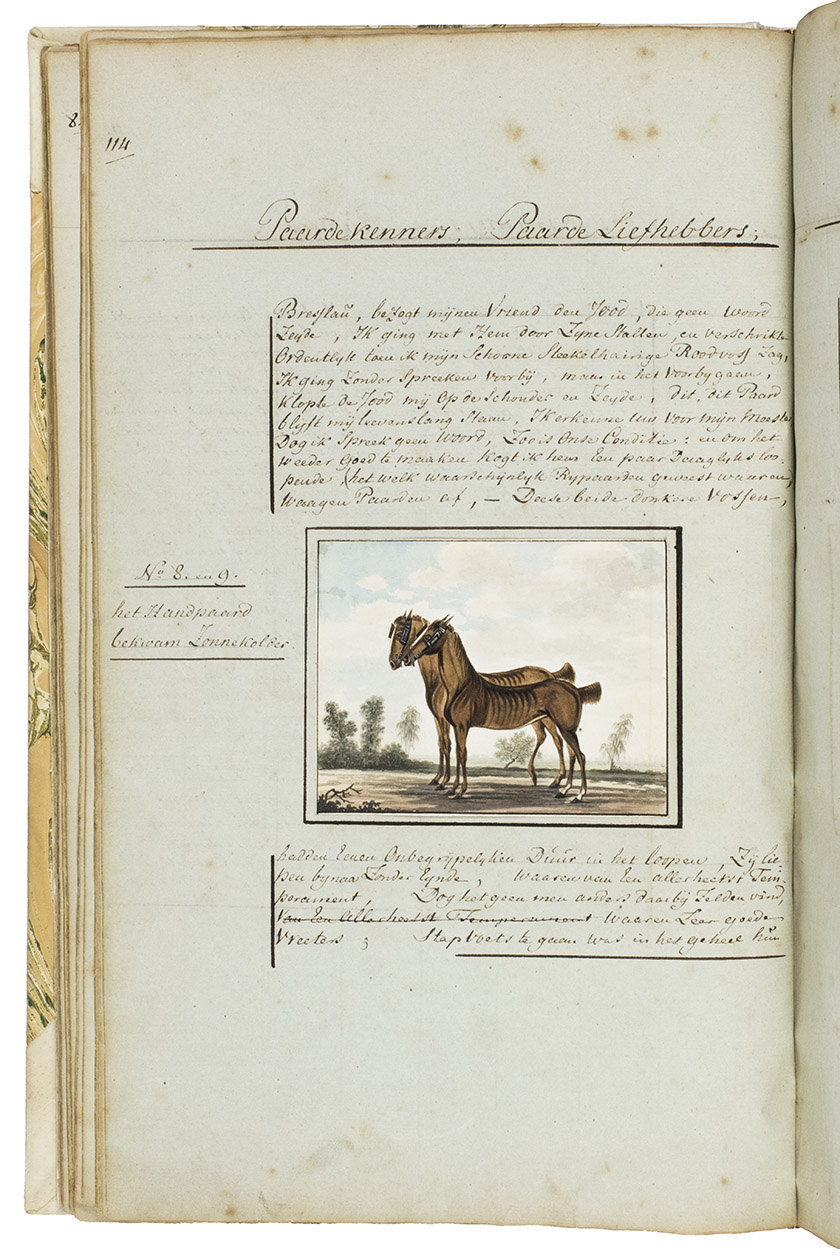 8.
114
Paardekenners, Paarde Liefhebbers;
Breslau, bezogt mijnen Vriend den Jood, die geen Woord
Zeyde, Ik ging met Hem door Zyne Stallen, en verschrikte
Ordentlyk toen ik mijn Schoone Steekelhairige Roodvos Zag,
Ik ging Zonder Spreeken voorbij, maar in het voorbygaan,
klopte de Jood mij op de Schouder en Zeyde, dit, dit Paard
blyft mij leevenslang Staan, Ik erkenne Uw voor mijn Meester
Dog ik Spreek geen Woord, Zoo is Onse Conditie: en om het
weeder Goed te maaken Kogt ik hem Een paar Daaglyks loo-
pende, (het welk waarschijnlyk Rypaarden geweest waaren)
Waagen Paarden af, — Deese beide donkere Vossen,
No 8. en 9.
het Handpaard
bekwam Zonnekolder.
hadden Eenen Onbegrypelyken Duur in het loopen, Zij lie-
pen bynaa Zonder Eynde, waaren van Een allerheetst Tem-
perament, Dog het geen men anders daar bij Zelden vind,
van Een Allerheetst Temperament waaren Zeer goede
Vreeters; Stapvoets te gaan was in het geheel hun